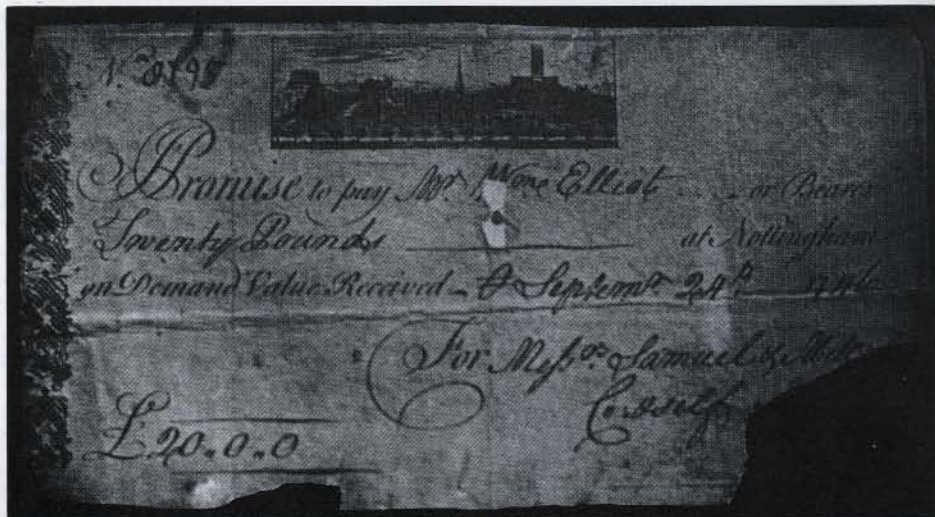 No.
Promise to pay Mr. Elliot or Bearer
Twenty Pounds at Nottingham
on Demand Value Received September 24th
For Messrs. Samuel
Co. & self
£20.0.0